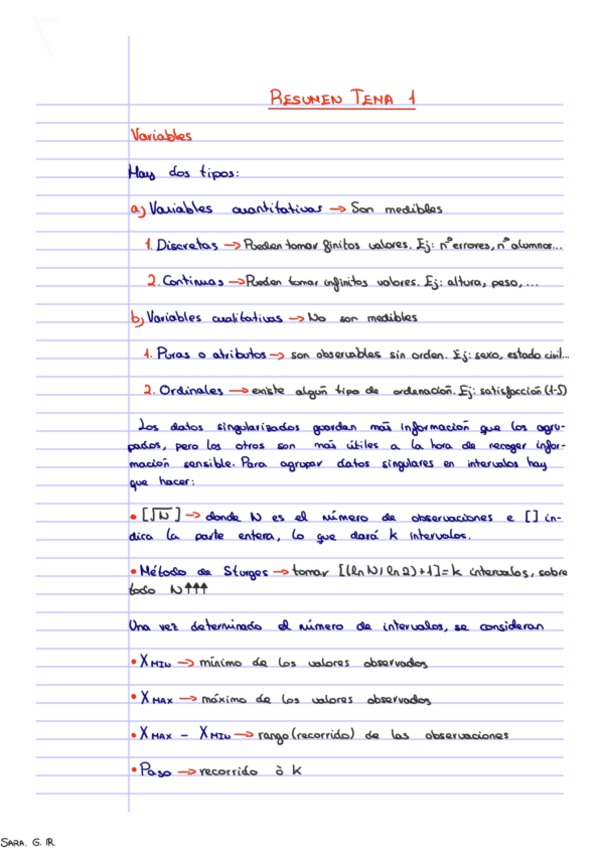 RESUMEN TEMA 1
Variables
Hay dos tipos:
a) Variables cuantitativas → Son medibles
1. Discretas → Pueden tomar finitos valores. Ej: nº errores, nº alumnos...
2. Continuas → Pueden tomar infinitos valores. Ej: altura, peso, ...
b) Variables cualitativas → No son medibles
1. Puras o atributos → son observables sin orden. Ej: sexo, estado civil...
2. Ordinales → existe algún tipo de ordenación. Ej: satisfacción (1-5)
Los datos singularizados guardan más información que los agru-
pados, pero los otros son más útiles a la hora de recoger infor-
mación sensible. Para agrupar datos singulares en intervalos hay
que hacer:
• [√N] → donde N es el número de observaciones e [] in-
dica la parte entera, lo que dará k intervalos.
• Método de Sturges → tomar [(ln N / ln 2) + 1] = k intervalos, sobre
todo N↑↑↑
Una vez determinado el número de intervalos, se consideran
• XMIN → mínimo de los valores observados
• XMAX → máximo de los valores observados
• XMAX - XMIN → rango (recorrido) de las observaciones
• Paso → recorrido ÷ k
SARA. G. IR.